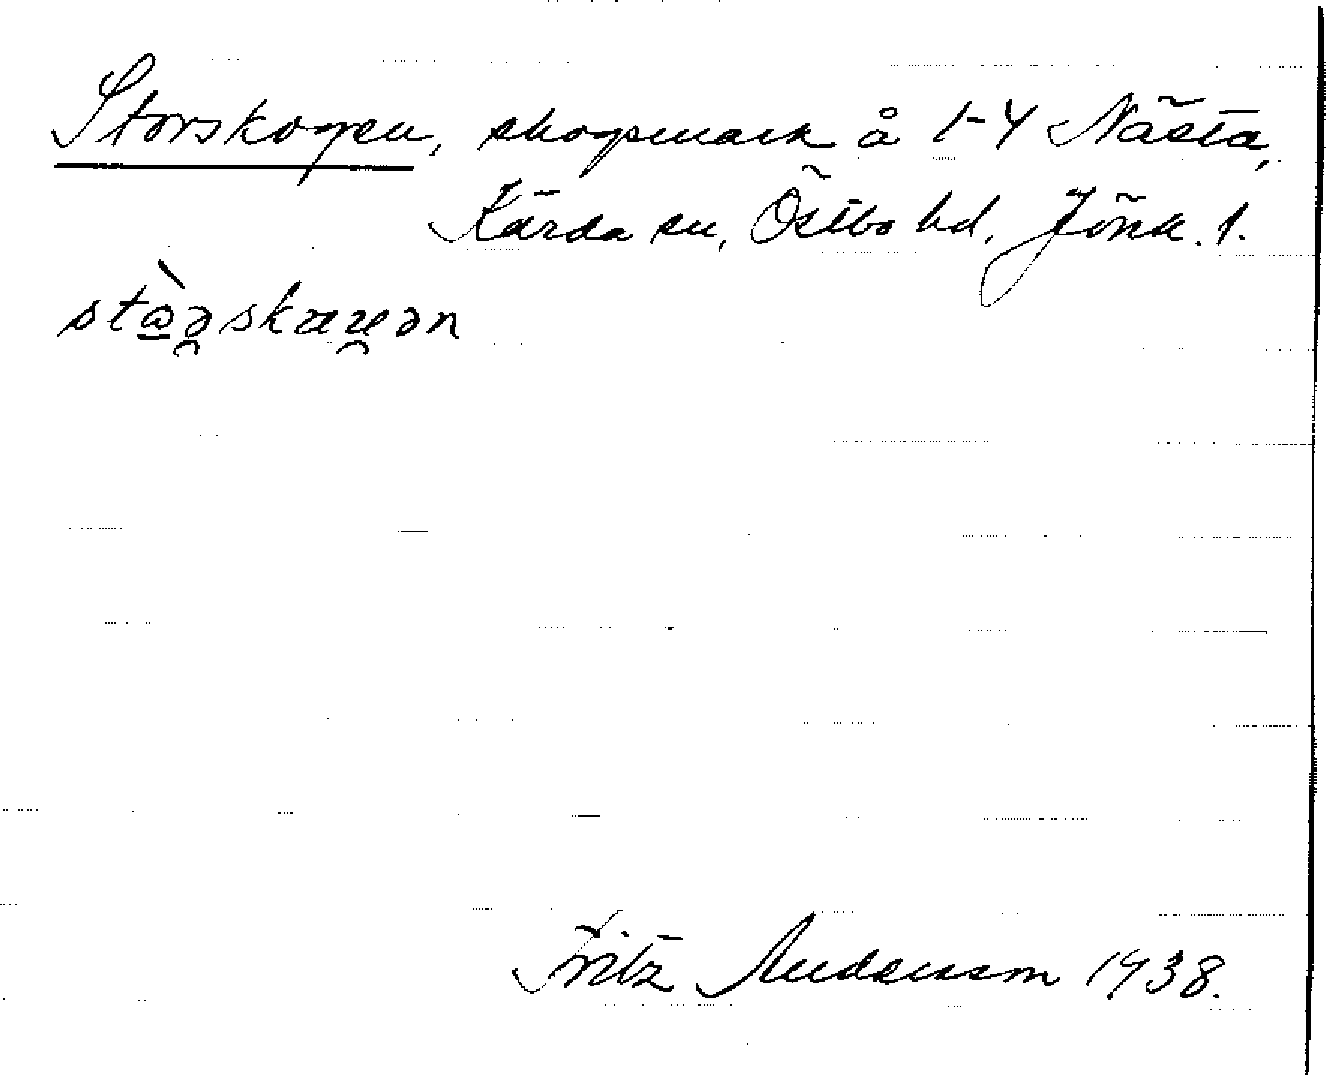 Storskogen, skogsmark å 1-4 Nästa,
Kärda sn, Östbo hd, Jönk. l.
Fritz Andersson 1938.